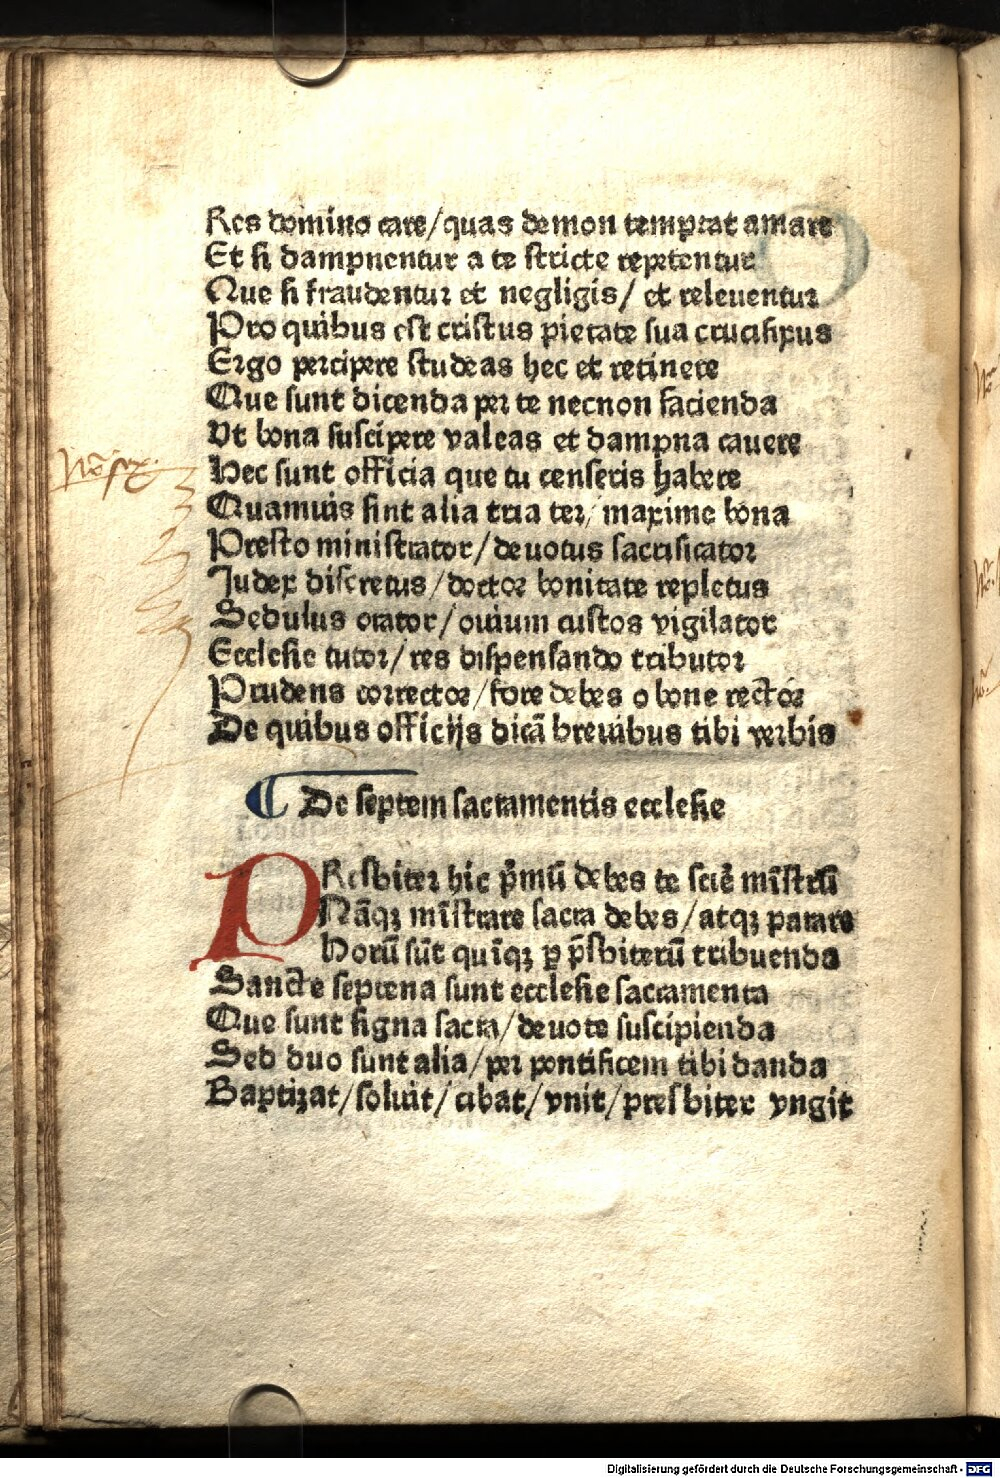 Res domino care/quas demon temptat amare
Et si dampnentur a te stricte repetentur
Que si fraudentur et negligis/ et releuentur
Pro quibus est cristus pietate sua crucifixus
Ergo percipere studeas hec et retinere
Que sunt dicenda per te necnon facienda
Vt bona suscipere valeas et dampna cauere
Hec sunt officia que tu censeris habere
Quamuis sint alia tria ter/ maxime bona
Presto ministrator/deuotus sacrificator
Judex discretus/doctor bonitate repletus
Sedulus orator/ouium custos vigilator
Ecclesie tutor/res dispensando tributor
Prudens corrector/fore debes o bone rector
De quibus officijs dicā breuibus tibi verbis
De septem sacramentis ecclesie
PResbiter hic p̄mū debes te scir̄e mīstrū
Nāqꝫ mīstrare sacra debes/atqꝫ parare
Horū sūt quīqꝫ ꝑ p̄sbiterū tribuenda
Sancte septena sunt ecclesie sacramenta
Que sunt signa sacra/deuote suscipienda
Sed duo sunt alia/per pontificem tibi danda
Baptizat/soluit/cibat/vnit/presbiter vngit
Digitalisierung gefördert durch die Deutsche Forschungsgemeinschaft - DFG